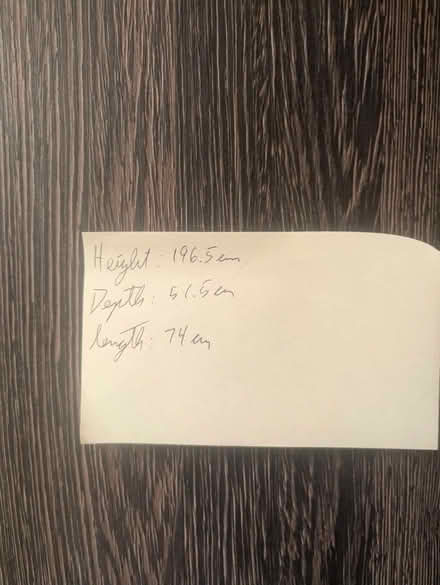 Height: 196.5cm
Depth: 51.5cm
length: 74cm